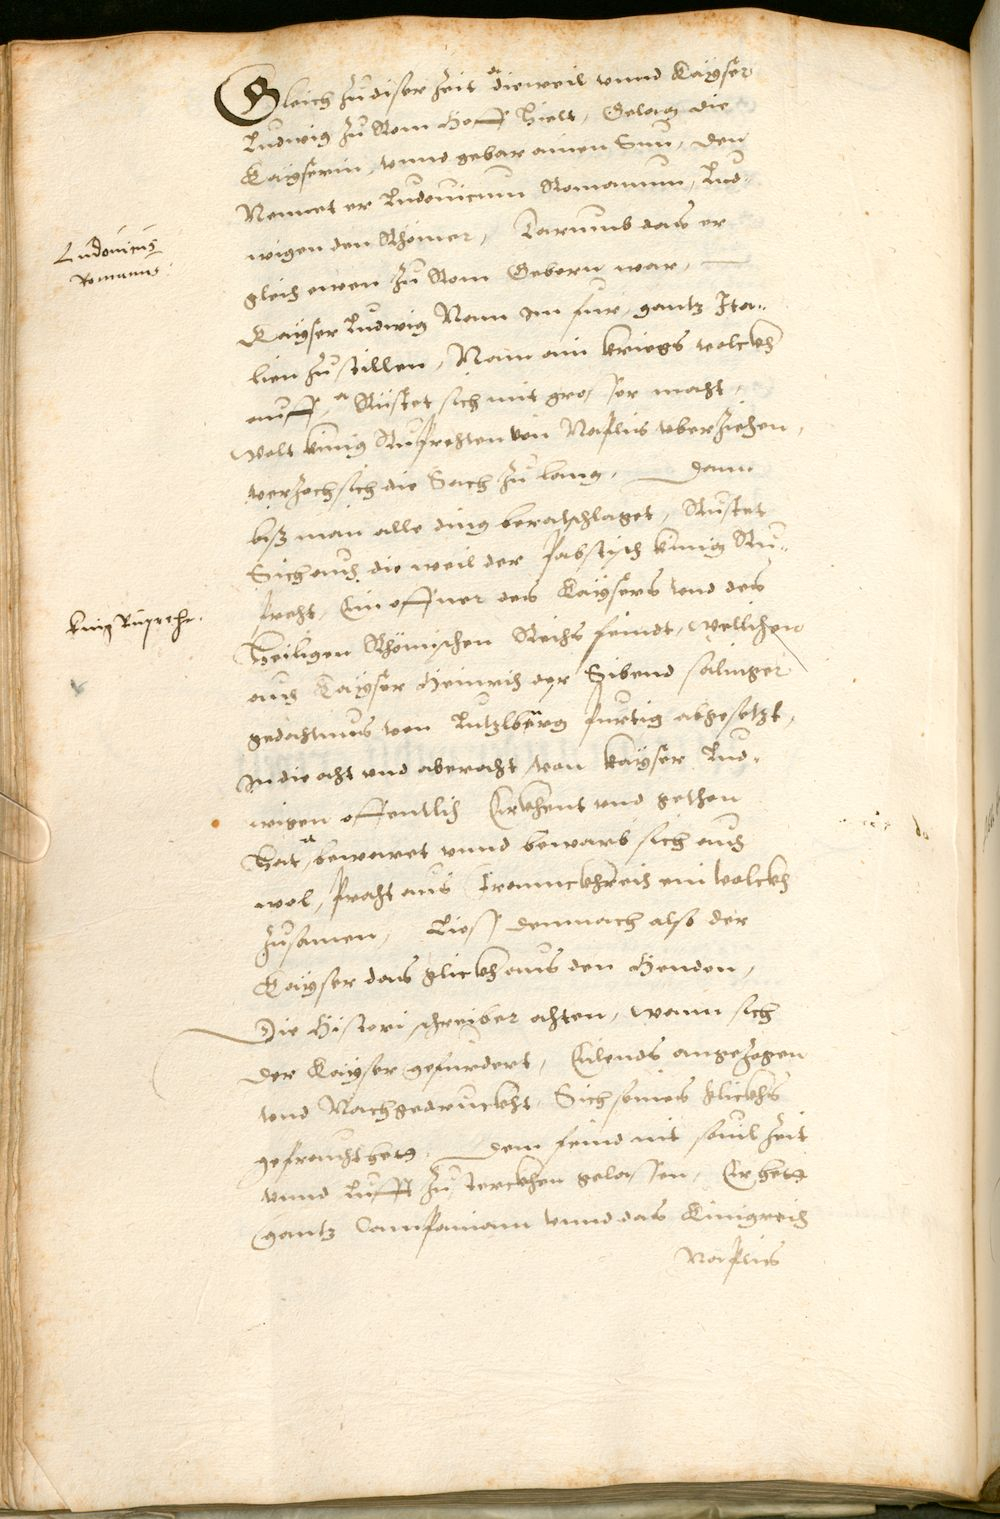 Gleich zu diser zeit dieweil vnnd Kayser
Ludwig zu Rom Hoff hielt, Gelag die
Kayserin, vnnd gebar ainen Sun, den
Nennet er Ludouicum Romanum, Lud-
wigen den Rhömer, Darumb das er
gleich ewen zu Rom Geborn war,
Ludouicus
Romanus
Kayser Ludwig Nam im fur, gantz Ita-
lien zu stillen, Nam ain kriegs volckh
auff, Rüstet sich mit grosser macht,
wolt künig Ruprechten von Naplus vberziehen,
verzoch sich die Sach zu lang, Dann
biß man alle ding beratschlaget, Rüstet
Sich auch die weil der pabstisch künig Ru-
precht, Ein offner des Kaysers vnd des
König Ruprecht.
Heiligen Rhömischen Reichs feindt, wellichen
auch Kayser Heinrich der Sibend saliger
gedachtnus von Lutzlberg furtig abgesetzt,
In die acht vnd aberacht von Kayser Lud-
wigen offentlich Erkhent vnd gethon
Hat, bewaret vnnd bewarb sich auch
wol, pracht aus Franckhreich ein volckh
zusamen, Liess demnach also der
Kayser das glickh aus den Henden,
Die Historischreiber achten, wann sich
der Kayser gefurdert, Eilends angezogen
vnd Nachgedruckht, Sich seines glickhs
gepraucht hett, dem feind nit souil zeit
vnnd Lufft zu sterckhen gelassen, Er hett
gantz Campaniam vnnd das Künigreich
Naplus